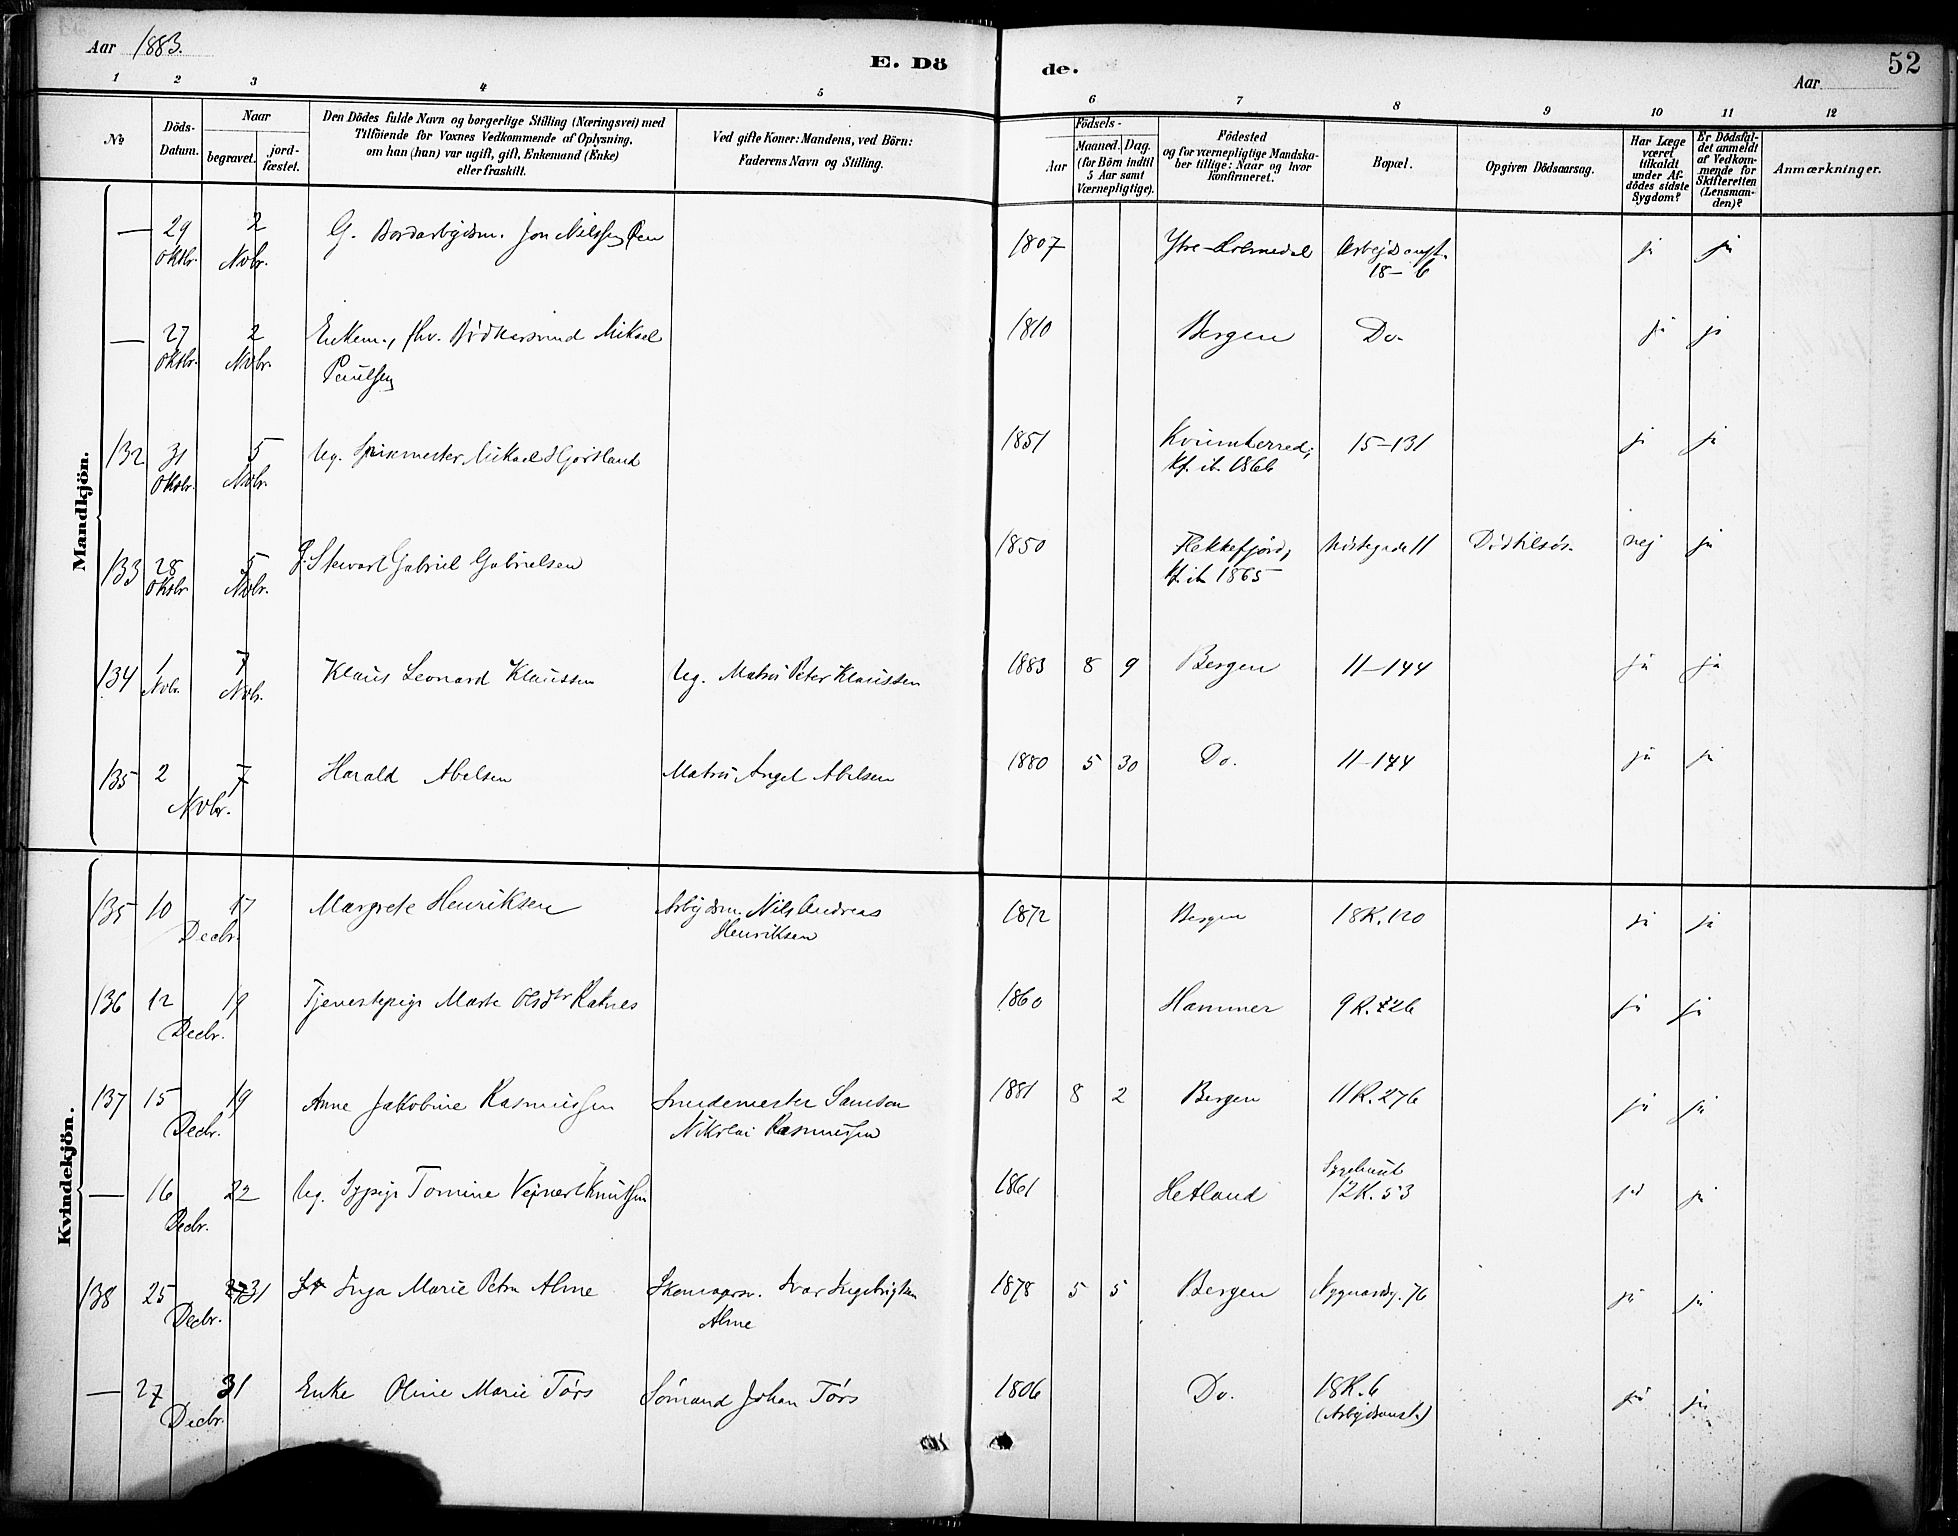 Aar 1883.
E. Dö
de.
Aar
52
1 2 3 4 5 6 7 8 9 10 11 12
No.
Döds-
Datum.
Naar
begravet.
jord-
fæstet.
Den Dödes fulde Navn og borgerlige Stilling (Næringsvei) med
Tilföiende for Voxnes Vedkommende af Oplysning,
om han (hun) var ugift, gift, Enkemand (Enke)
eller fraskilt.
Ved gifte Koner: Mandens, ved Börn:
Faderens Navn og Stilling.
Födsels-
Aar
Maaned.
Dag.
(for Börn indtil
5 Aar samt
Værnepligtige).
Födested
og for værnepligtige Mandska-
ber tillige: Naar og hvor
konfirmeret.
Bopæl.
Opgiven Dödsaarsag.
Har Læge
været
tilkaldt
under Af-
dödes sidste
Sygdom?
Er Dödsfal-
det anmeldt
af Vedkom-
mende for
Skifteretten
(Lensman-
den)?
Anmærkninger.
Mandkjön.
— 29 Oktbr. 2 Novbr. G. Jon Nilssen 1807 18-6 ja ja
— 27 Oktbr. 2 Novbr. Enkem., fhv. Bödkersvend Mikael 1810 Bergen Do. ja ja
Paulsen
132 31 Oktbr. 5 Novbr. Ug. Mikael Gjortland 1851 15-131 ja ja
Kf. ib. 1866
133 28 Oktbr. 5 Novbr. G. Stewart Gabriel Gabrielsen 1850 Flekkefjord, nej ja
Kf. ib 1865
134 1 Novbr. 7 Novbr. Klaus Leonard Klaussen Ug. Matros Peter Klaussen 1883 8 9 Bergen 11-144 ja ja
135 2 7 Novbr. Harald Abelsen Matros Angel Abelsen 1880 5 30 Do. 11-144 ja ja
Kvindekjön.
135 10 17 Decbr. Margrete Henriksen Arbejdsm. Nils Andreas 1872 Bergen 18K.120 ja ja
Henriksen
136 12 19 Decbr. Tjenestepige Marte Olsdtr 1860 Hammer ja ja
137 15 19 Decbr. Anne Jakobine Rasmussen Smedemester Samson 1881 8 2 Bergen 11K.276 ja ja
Nikolai Rasmussen
— 16 22 Decbr. Ug. Sypige Tomine Knutsen 1861 Hetland 12K.53 ja ja
138 25 31 Decbr. Inga Marie Petra Alme Skomagersv. Ivar Ingebrigtsen 1878 5 5 Bergen Nygaardsg. 76 ja ja
Alme
— 27 31 Decbr. Enke Oline Marie Törs Sömand Johan Törs 1806 Do. 18K.6 ja ja
(Arbejdsanst.)